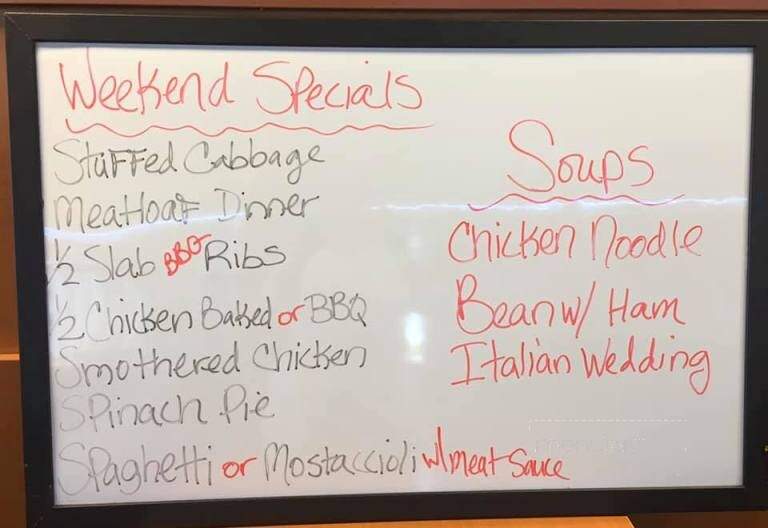 Weekend Specials
Stuffed Cabbage
Meatloaf Dinner
1/2 Slab BBQ Ribs
1/2 Chicken Baked or BBQ
Smothered Chicken
Spinach Pie
Spaghetti or Mostaccioli w/meat Sauce
Soups
Chicken Noodle
Bean w/ Ham
Italian Wedding